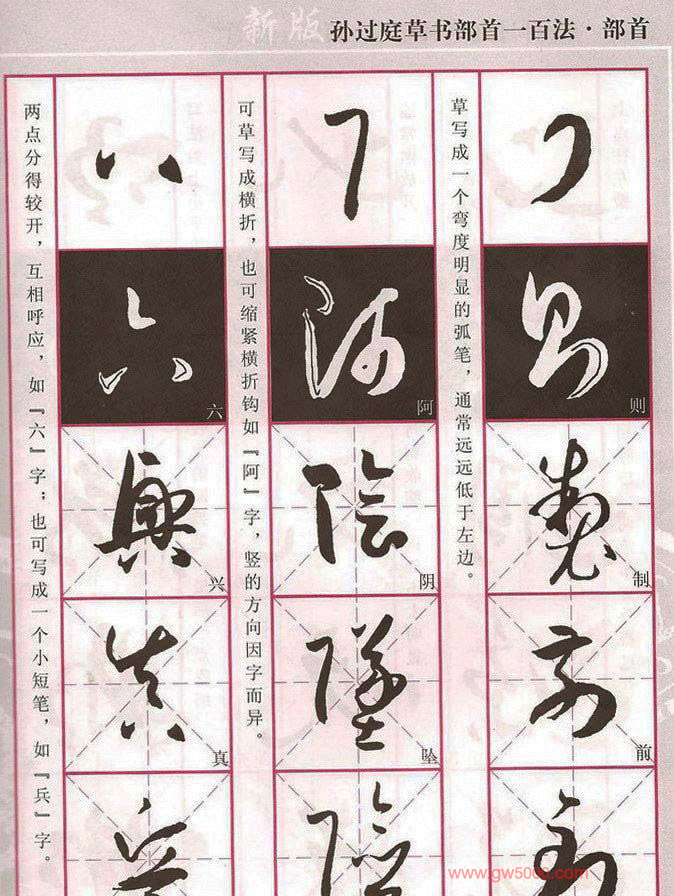 新版 孙过庭草书部首一百法·部首
草写成一个弯度明显的弧笔，通常远远低于左边。
则
制
前
可草写成横折，也可缩紧横折钩如『阿』字，竖的方向因字而异。
阿
阴
坠
两点分得较开，互相呼应，如『六』字；也可写成一个小短笔，如『兵』字。
六
兴
真
www.gw5000.com